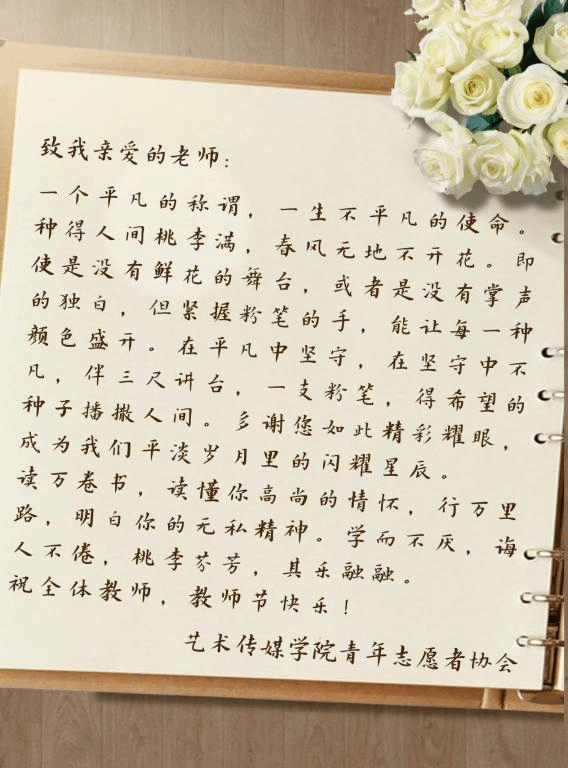 致我亲爱的老师：
一个平凡的称谓，一生不平凡的使命。
种得人间桃李满，春风无地不开花。即
使是没有鲜花的舞台，或者是没有掌声
的独白，但紧握粉笔的手，能让每一种
颜色盛开。在平凡中坚守，在坚守中不
凡，伴三尺讲台，一支粉笔，得希望的
种子播撒人间。多谢您如此精彩耀眼，
成为我们平淡岁月里的闪耀星辰。
读万卷书，读懂你高尚的情怀，行万里
路，明白你的无私精神。学而不厌，诲
人不倦，桃李芬芳，其乐融融。
祝全体教师，教师节快乐！
艺术传媒学院青年志愿者协会